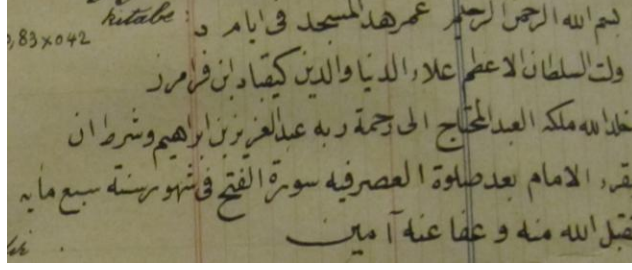 kitabe: بسم الله الرحمن الرحيم عمر هد المسجد فى ايام د
0,83x042
ولت السلطان الاعظم علاء الدنيا والدين كيقباد ابن فرامرز
خلد الله ملكه العبد المحتاج الى رحمة ربه عبد العزيز بن ابراهيم وشرط ان
يقرء الامام بعد صلوة العصر فيه سورة الفتح فى شهور سنة سبع مايه
تقبل الله منه و عفا عنه آمين